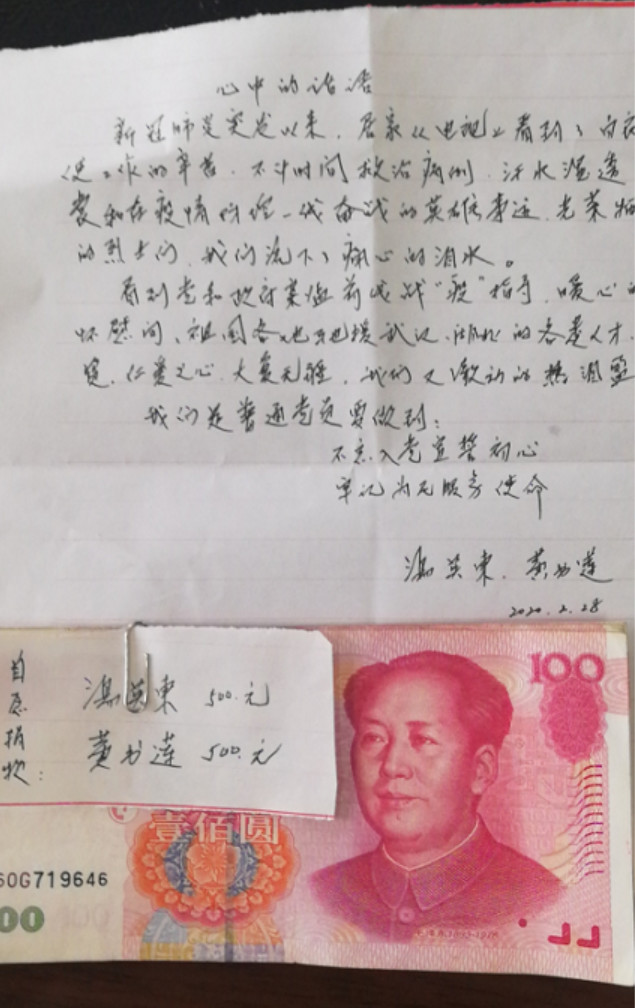 心中的话语
新冠肺炎突发以来，居家从电视上看到，白衣
使工作的辛苦，不计时间救治病例，汗水湿透
衰和在疫情防控一线奋战的英雄事迹，光荣牺
的烈士们，我们流下了痛心的泪水。
看到党和政府某临前线战“疫”指导，暖心的
怀慰问，祖国各地支援武汉、湖北的各类人才、
仁爱之心，大爱无疆，我们又激动的热泪盈
我们是普通党员要做到：
不忘入党宣誓初心
牢记为民服务使命
冯英東．黄书莲
2020.2.28
自愿捐款：
冯英東 500元
黄书莲 500元
100
壹佰圆
60G719646
00